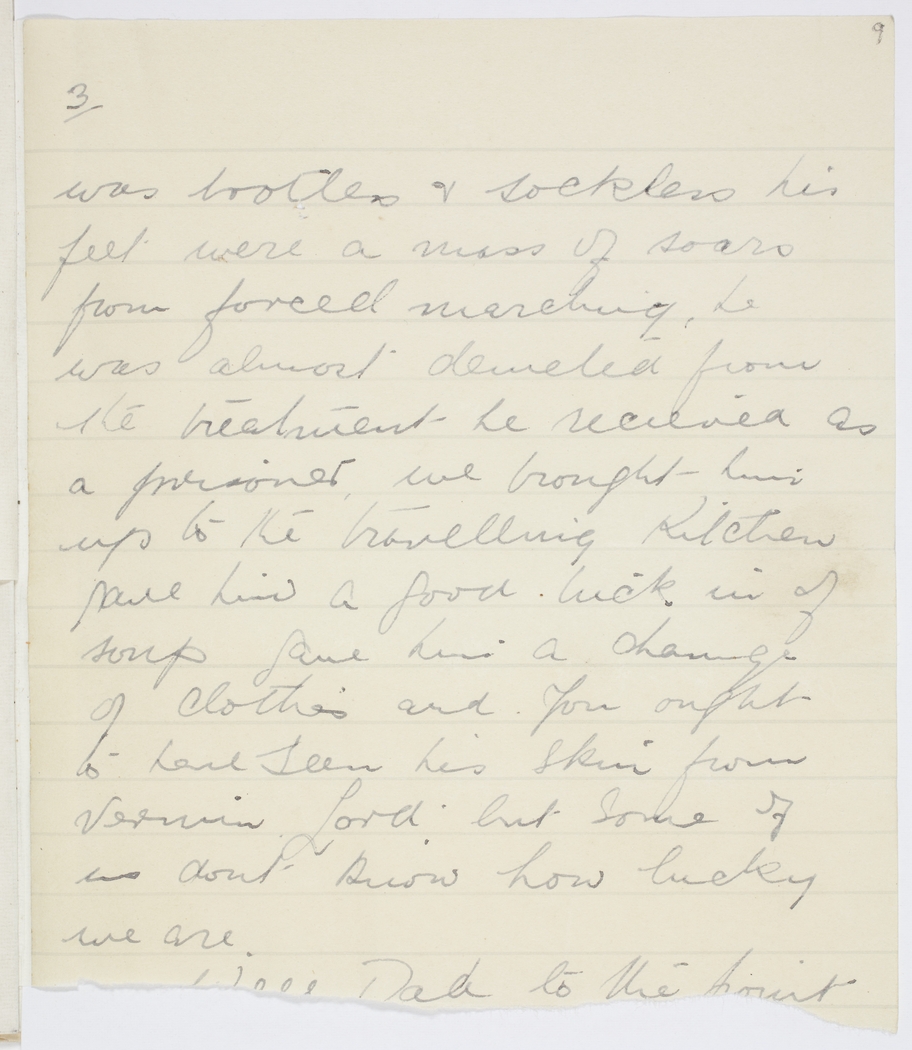 9
3/
was bootless & sockless his
feet were a mass of soars
from forced marching, he
was almost demeted from
the treatment he recieved as
a prisoner, we brought him
up to the travelling Kitchen
gave him a good tuck in of
soup gave him a change
of clothes and you ought
to have seen his skin from
vermin Lord but some of
us dont know how lucky
we are.
Well Dad to the point